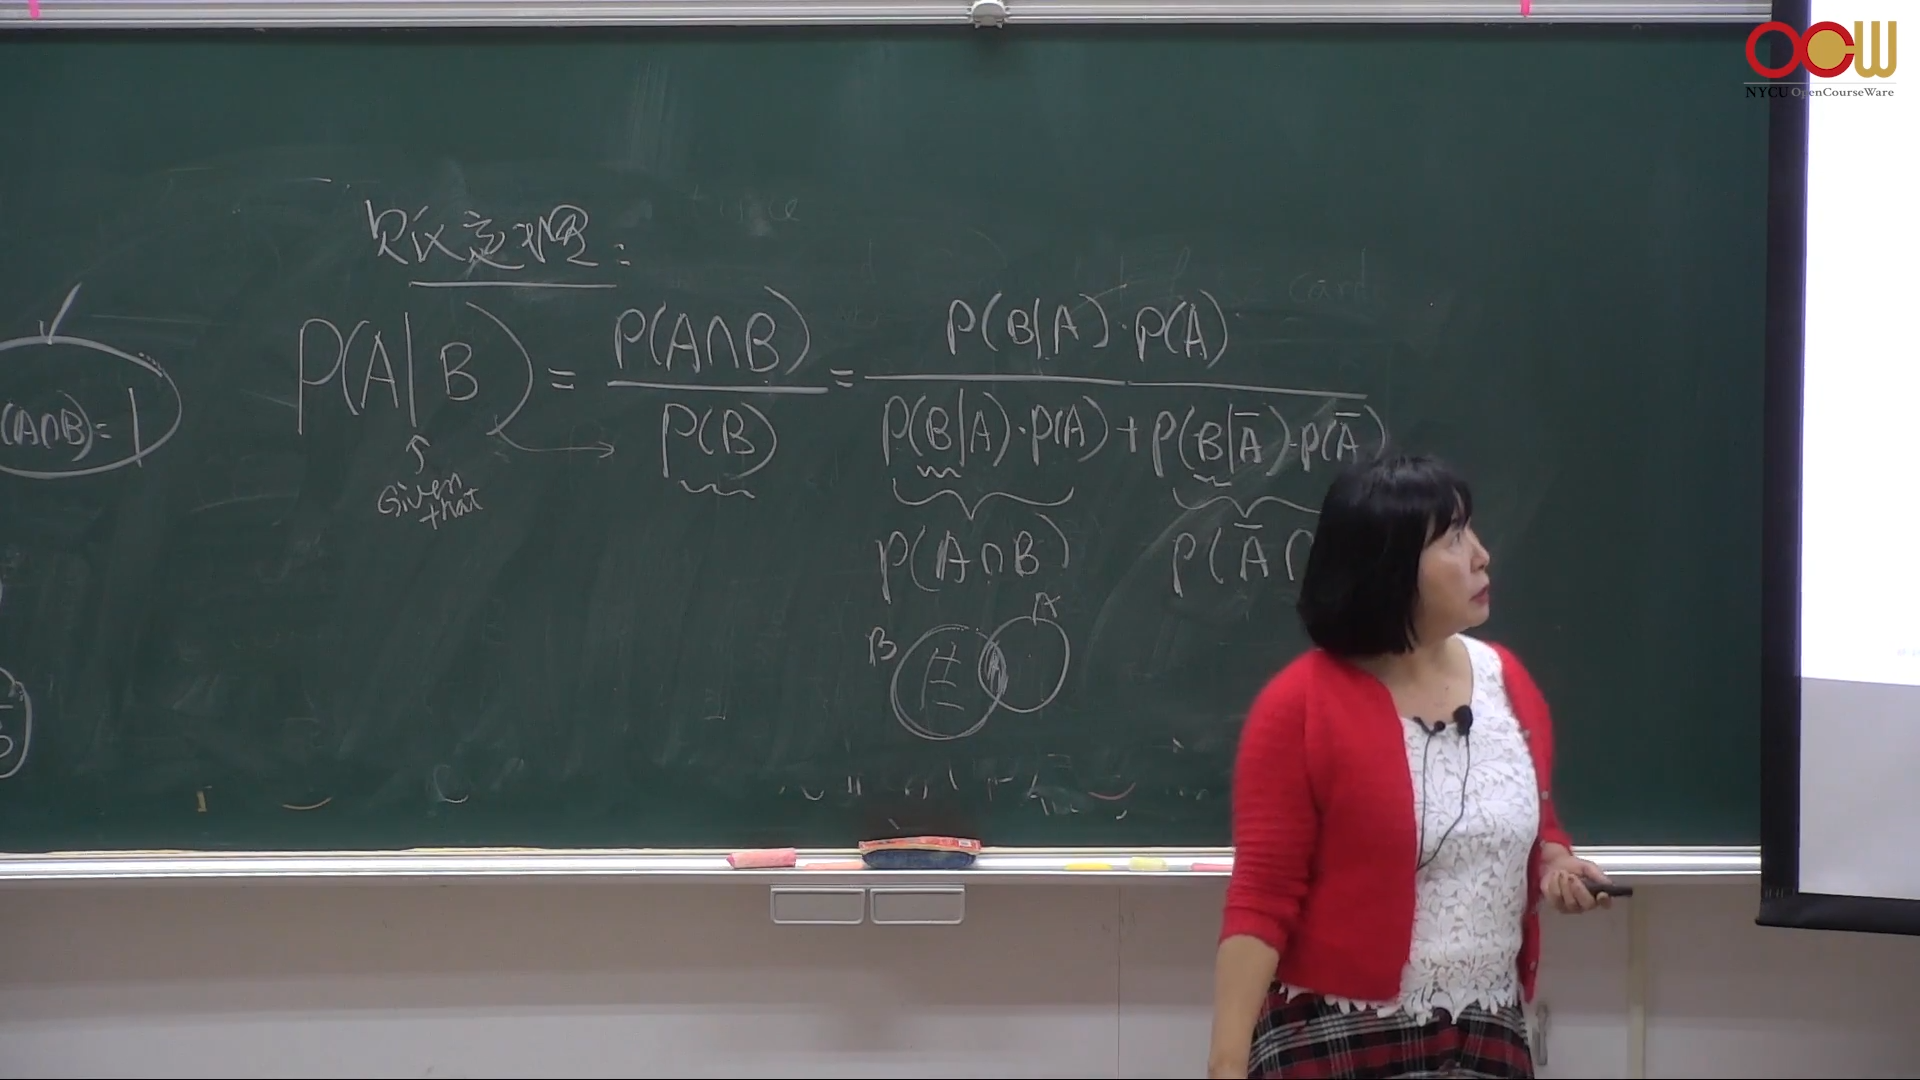 OCW
NYCU OpenCourseWare
貝氏定理:
P(A|B) = P(A∩B) / P(B) = P(B|A)·P(A) / P(B|A)·P(A) + P(B|Ā)·P(Ā)
(A∩B)= 1
Given
that
P(A∩B)
P(Ā∩
A
B